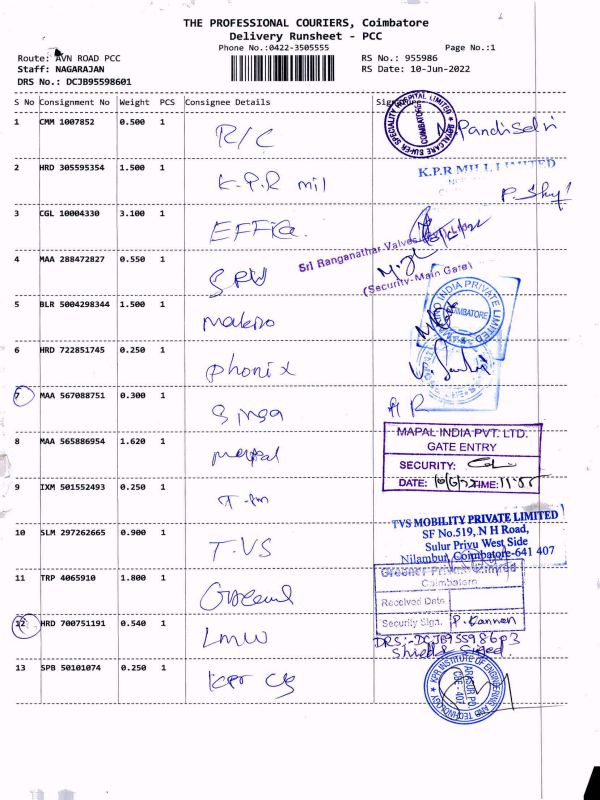 THE PROFESSIONAL COURIERS, Coimbatore
Delivery Runsheet - PCC
Phone No.:0422-3505555
Page No.:1
Route: AVN ROAD PCC
RS No.: 955986
Staff: NAGARAJAN
RS Date: 10-Jun-2022
DRS No.: DCJB95598601
S No Consignment No Weight PCS Consignee Details
1 CMM 1007852 0.500 1 R/C
ROYALCARE SUPER SPECIALITY HOSPITAL LIMITED
COIMBATORE
PandiSelvi
2 HRD 305595354 1.500 1 K.P.R mil
K.P.R MILL LIMITED
3 CGL 10004330 3.100 1 EFFica
4 MAA 288472827 0.550 1 SRV
Sri Ranganathar Valves
(Security-Main Gate)
5 BLR 5004298344 1.500 1 makino
INDIA PRIVATE LIMITED
COIMBATORE
6 HRD 722851745 0.250 1 phonix
7 MAA 567088751 0.300 1
8 MAA 565886954 1.620 1
MAPAL INDIA PVT. LTD.
GATE ENTRY
SECURITY:
DATE: 10/6/22 TIME: 11:55
9 IXM 501552493 0.250 1
10 SLM 297262665 0.900 1 T.VS
TVS MOBILITY PRIVATE LIMITED
SF No.519, N H Road,
Sulur Privu West Side
Nilambur, Coimbatore-641 407
11 TRP 4065910 1.800 1
Private Limited
Coimbatore
Received Date
Security Sign. P. Kannan
12 HRD 700751191 0.540 1 LMW
DRS:-DCJB955986p3
Shield & Signed.
13 SPB 50101074 0.250 1 kpr clg
KPR INSTITUTE OF ENGINEERING AND TECHNOLOGY
ARASUR PO.
CBE - 407